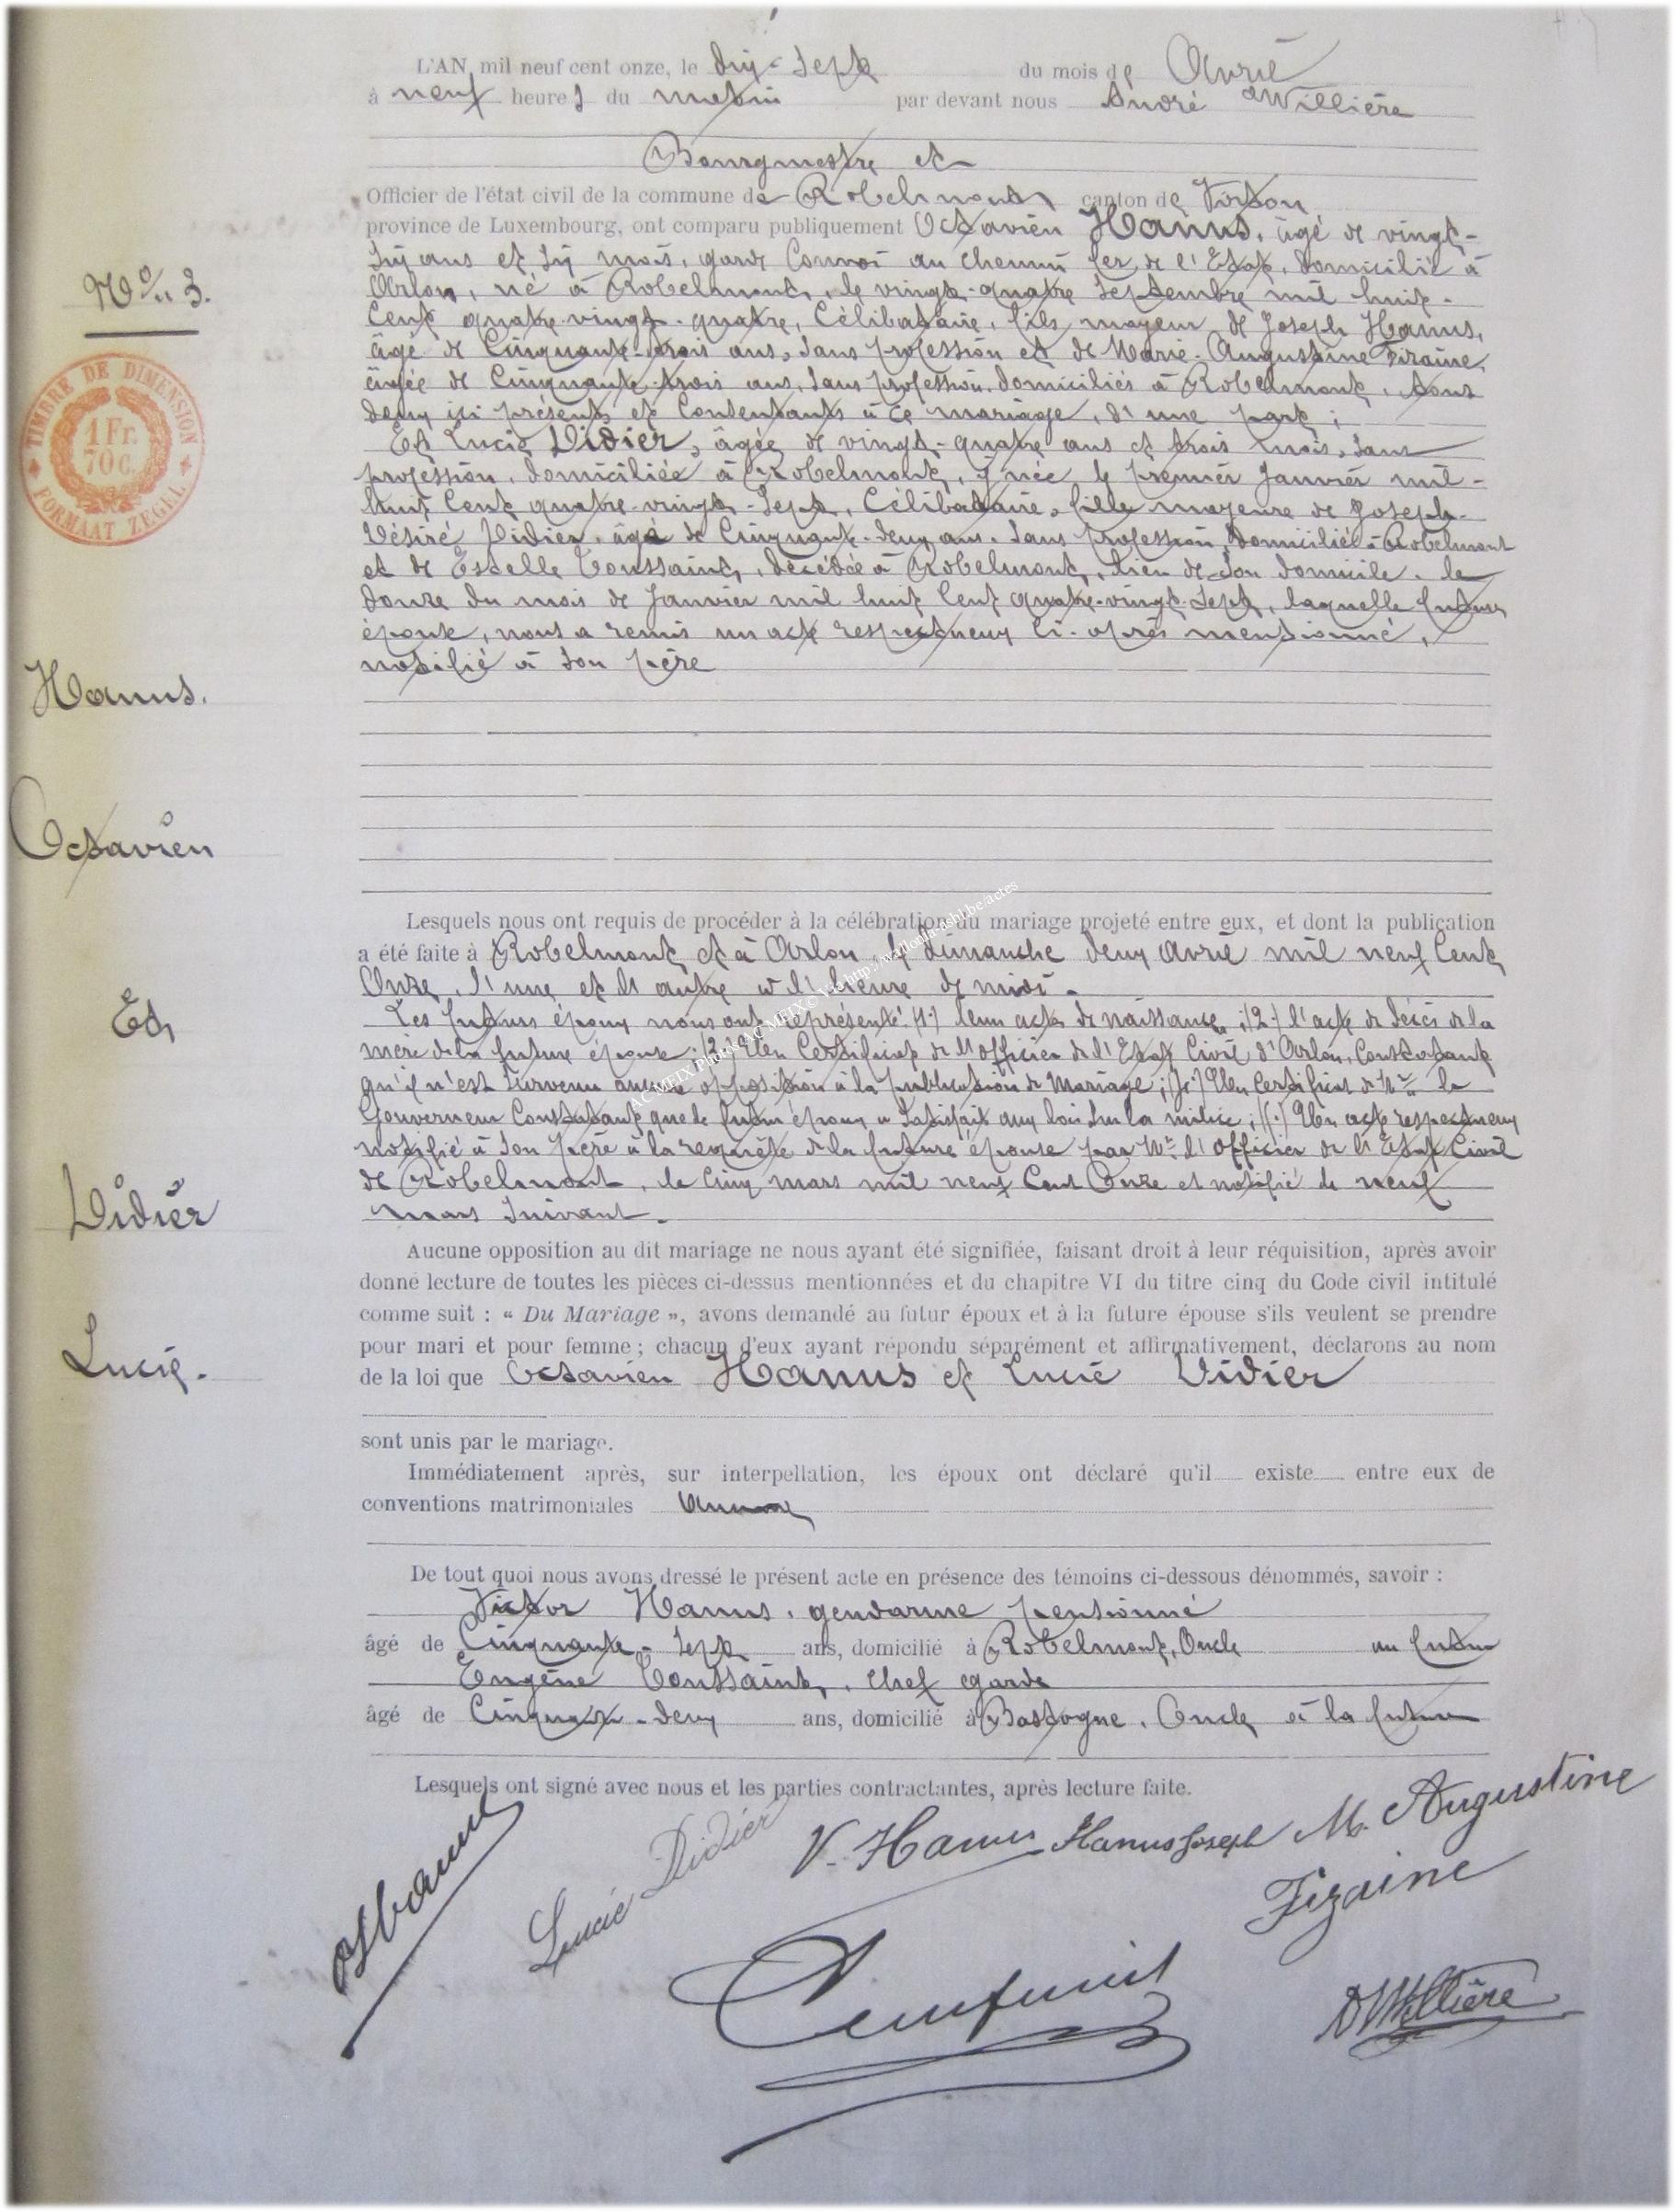 L'AN mil neuf cent onze, le dix-sept du mois de Avril
à neuf heures du matin par devant nous André Willière
Bourgmestre et
Officier de l'état civil de la commune de Robelmont canton de Virton
province de Luxembourg, ont comparu publiquement Octavien Hanus, âgé de vingt-
six ans et six mois, garde Convoi au chemin fer de l'Etat, domicilié à
Arlon, né à Robelmont, le vingt-quatre septembre mil huit-
Cent quatre-vingt-quatre, Célibataire, fils majeur de Joseph Hanus,
âgé de Cinquante-trois ans, sans profession et de Marie-Augustine Fizaine,
âgée de Cinquante-trois ans, sans profession, domiciliés à Robelmont, tous
deux ici présents et Consentants à ce mariage, d'une part;
Et Lucie Didier, âgée de vingt-quatre ans et trois mois, sans
profession, domiciliée à Robelmont, y née le premier Janvier mil-
huit Cent quatre-vingt-sept, Célibataire, fille majeure de Joseph-
Désiré Didier, âgé de Cinquante-deux ans, sans profession, domicilié à Robelmont
et de Estelle Toussaint, décédée à Robelmont, lieu de son domicile, le
douze du mois de Janvier mil huit Cent quatre-vingt-sept, laquelle future
épouse, nous a remis un acte respectueux ci-après mentionné,
notifié à son père
Lesquels nous ont requis de procéder à la célébration du mariage projeté entre eux, et dont la publication
a été faite à Robelmont et à Arlon le dimanche deux avril mil neuf Cent
Onze, l'une et l'autre à l'heure de midi.
Les futurs époux nous ont représenté: 1:) leur acte de naissance; 2:) l'acte de décès de la
mère de la future épouse; Un Certificat de l'officier de l'Etat Civil d'Arlon, Constatant
qu'il n'est survenu aucune opposition à la publication de Mariage; Un Certificat de Mr le
Gouverneur Constatant que le futur époux a satisfait aux lois sur la milice; Un acte respectueux
notifié à son père à la requête de la future épouse par Mr l'officier de l'Etat Civil
de Robelmont, le Cinq mars mil neuf Cent Onze et notifié le neuf
mars suivant.
Aucune opposition au dit mariage ne nous ayant été signifiée, faisant droit à leur réquisition, après avoir
donné lecture de toutes les pièces ci-dessus mentionnées et du chapitre VI du titre cinq du Code civil intitulé
comme suit : « Du Mariage », avons demandé au futur époux et à la future épouse s'ils veulent se prendre
pour mari et pour femme ; chacun d'eux ayant répondu séparément et affirmativement, déclarons au nom
de la loi que Octavien Hanus et Lucie Didier
sont unis par le mariage.
Immédiatement après, sur interpellation, les époux ont déclaré qu'il existe entre eux de
conventions matrimoniales
De tout quoi nous avons dressé le présent acte en présence des témoins ci-dessous dénommés, savoir :
Victor Hanus, gendarme pensionné
âgé de Cinquante-sept ans, domicilié à Robelmont, Oncle au futur
Eugène Toussaint, chef garde
âgé de Cinquante-deux ans, domicilié à Bastogne, Oncle à la future
Lesquels ont signé avec nous et les parties contractantes, après lecture faite.
Lucie Didier V. Hanus Hanus Joseph M. Augustine
Fizaine
AWillière
No 3.
TIMBRE DE DIMENSION
1 Fr.
70 c.
FORMAAT ZEGEL
Hanus.
Octavien
Et
Didier
Lucie.